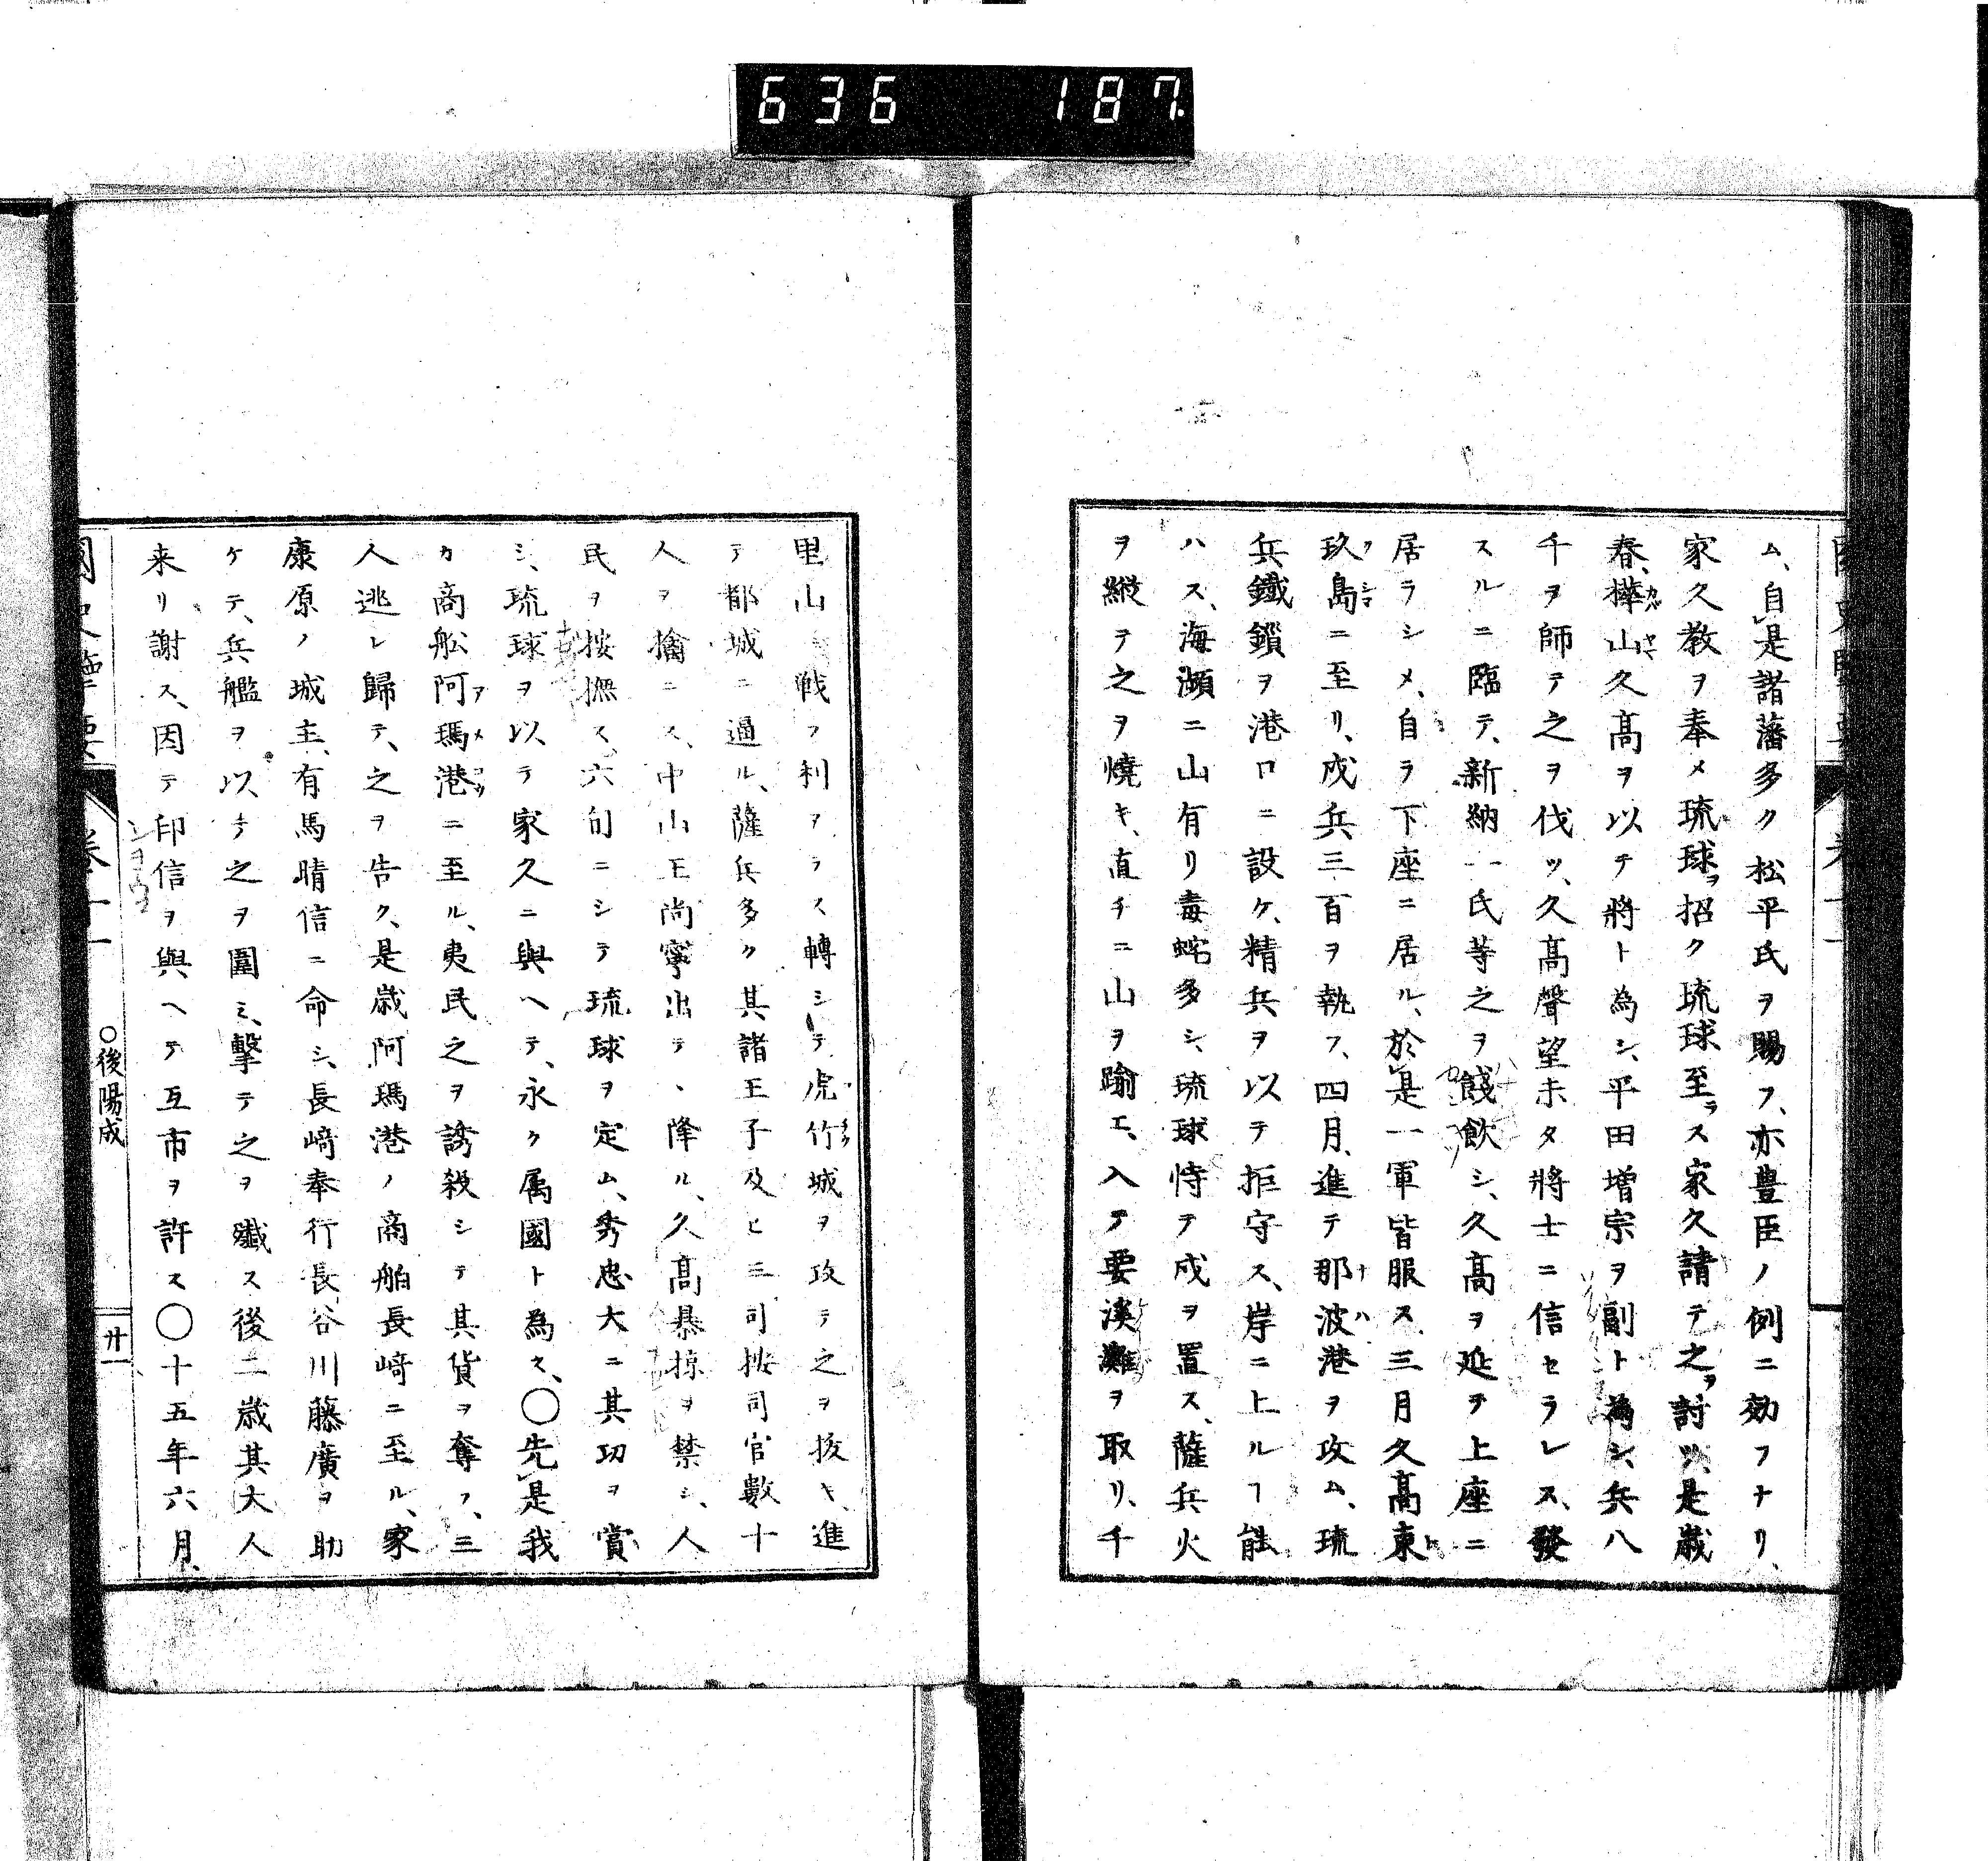 636 187
ム、自是諸藩多ク松平氏ヲ賜フ、亦豊臣ノ例ニ効フナリ、
家久教ヲ奉メ琉球ヲ招ク琉球至ラス家久請テ之ヲ討ツ、是歳
春、樺山久高ヲ以テ將ト為シ、平田増宗ヲ副ト為シ、兵八
千ヲ師テ之ヲ伐ツ、久高聲望未タ將士ニ信セラレス、發
スルニ臨テ、新納一氏等之ヲ餞飲シ、久高ヲ延テ上座ニ
居ラシメ、自ラ下座ニ居ル、於是一軍皆服ス、三月久高東
玖島ニ至リ、戍兵三百ヲ執フ、四月、進テ那波港ヲ攻ム、琉
兵鐵鎖ヲ港口ニ設ケ、精兵ヲ以テ拒守ス、岸ニ上ルヿ能
ハス、海瀕ニ山有リ毒蛇多シ、琉球恃テ戍ヲ置ス、薩兵火
ヲ縦テ之ヲ燒キ、直チニ山ヲ踰エ、入テ要渓灘ヲ取リ、千
里山ニ戦フ利アラス轉シテ虎竹城ヲ攻テ之ヲ抜キ、進
テ都城ニ逼ル、薩兵多ク其諸王子及ヒ三司按司官數十
人ヲ擒ニス、中山王尚寧出テヽ降ル、久高暴掠ヲ禁シ、人
民ヲ按撫ス、六旬ニシテ琉球ヲ定ム、秀忠大ニ其功ヲ賞
シ、琉球ヲ以テ家久ニ與ヘテ、永ク属國ト為ス、〇先是我
カ商舩阿瑪港ニ至ル、夷民之ヲ誘殺シテ其貨ヲ奪フ、三
人逃レ歸テ、之ヲ告ク、是歳阿瑪港ノ商舶長﨑ニ至ル、家
康原ノ城主、有馬晴信ニ命シ、長﨑奉行長谷川藤廣ヲ助
ケテ、兵艦ヲ以テ之ヲ圍ミ、擊テ之ヲ殲ス後二歳其大人
来リ謝ス、因テ印信ヲ與ヘテ互市ヲ許ス〇十五年六月、
〇後陽成
廿一